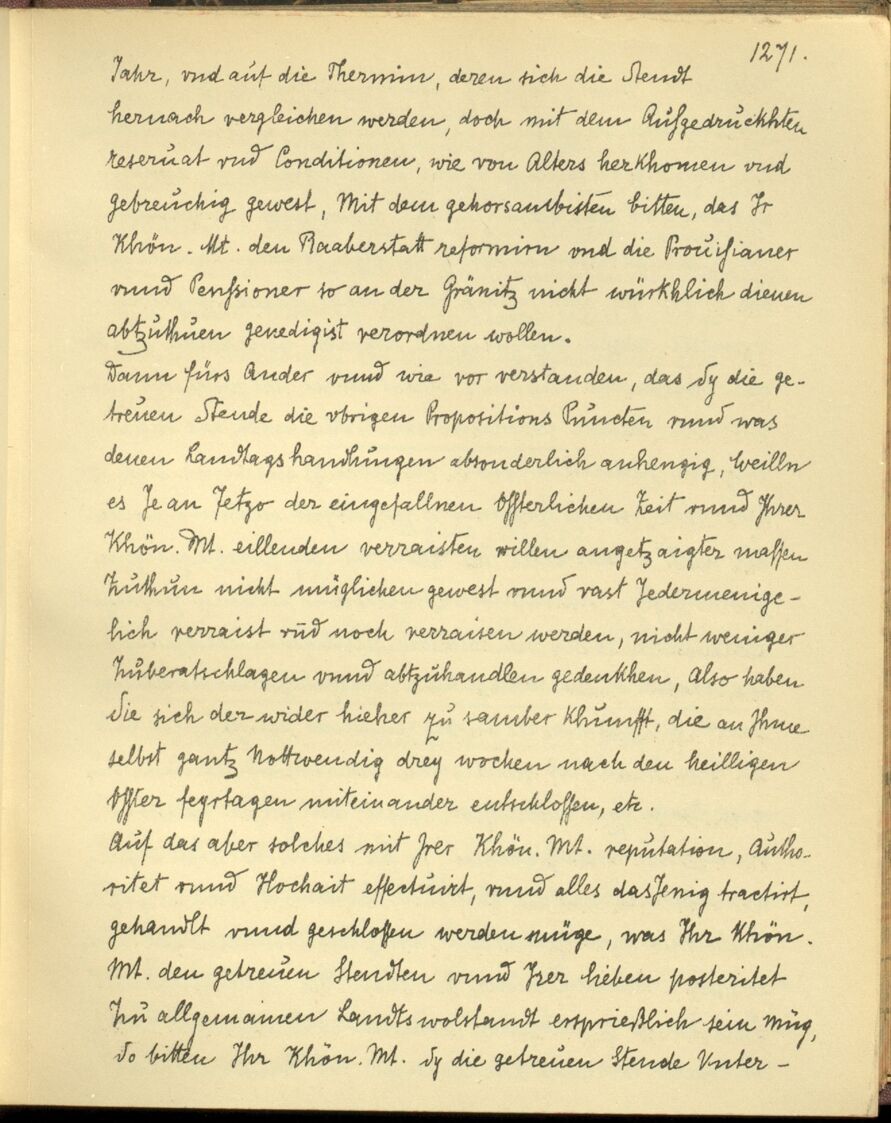 1271.
Jahr, vnd auf die Thermin, deren sich die Stendt
hernach vergleichen werden, doch mit dem Aufgedruckhten
reseruat vnd Conditionen, wie von Alters herkhomen vnd
gebreuchig gewest, Mit dem gehorsambisten bitten, das Ir
Khön. Mt. den Raaberstatt reformirn vnd die Prouisianer
vnnd Penssioner so an der Gränitz nicht würkhlich dienen
abtzuthuen genedigist verordnen wollen.
Dann fürs Ander vnnd wie vor verstanden, das Sy die ge-
treuen Stende die vbrigen Propositions Puncten vnnd was
denen Landtags handlungen absonderlich anhengig, Weilln
es Je an Jetzo der eingefallnen Össterlichen Zeit vnnd Ihrer
Khön. Mt. eillenden verraisten willen angetzaigter massen
Zuthun nicht müglichen gewest vnnd vast Jedermenige-
lich verraist vnd noch verraisen werden, nicht weniger
Zuberatschlagen vnnd abtzuhandlen gedenkhen, Also haben
Sie sich der wider hieher zu samber Khunfft, die an Ihme
selbst gantz Nottwendig drey wochen nach den heilligen
Osster feyrtagen miteinander entschlossen, etc.
Auf das aber solches mit Irer Khön. Mt. reputation, Autho-
ritet vnnd Hochait effectuirt, vnnd alles dasJenig tractirt,
gehandlt vnnd geschlossen werden müge, was Ihr Khön.
Mt. den getreuen Stendten vnnd Irer lieben posteritet
Zu allgemainen Landts wolstandt ersprießlich sein müg,
So bitten Ihr Khön. Mt. Sy die getreuen Stende Vnter-